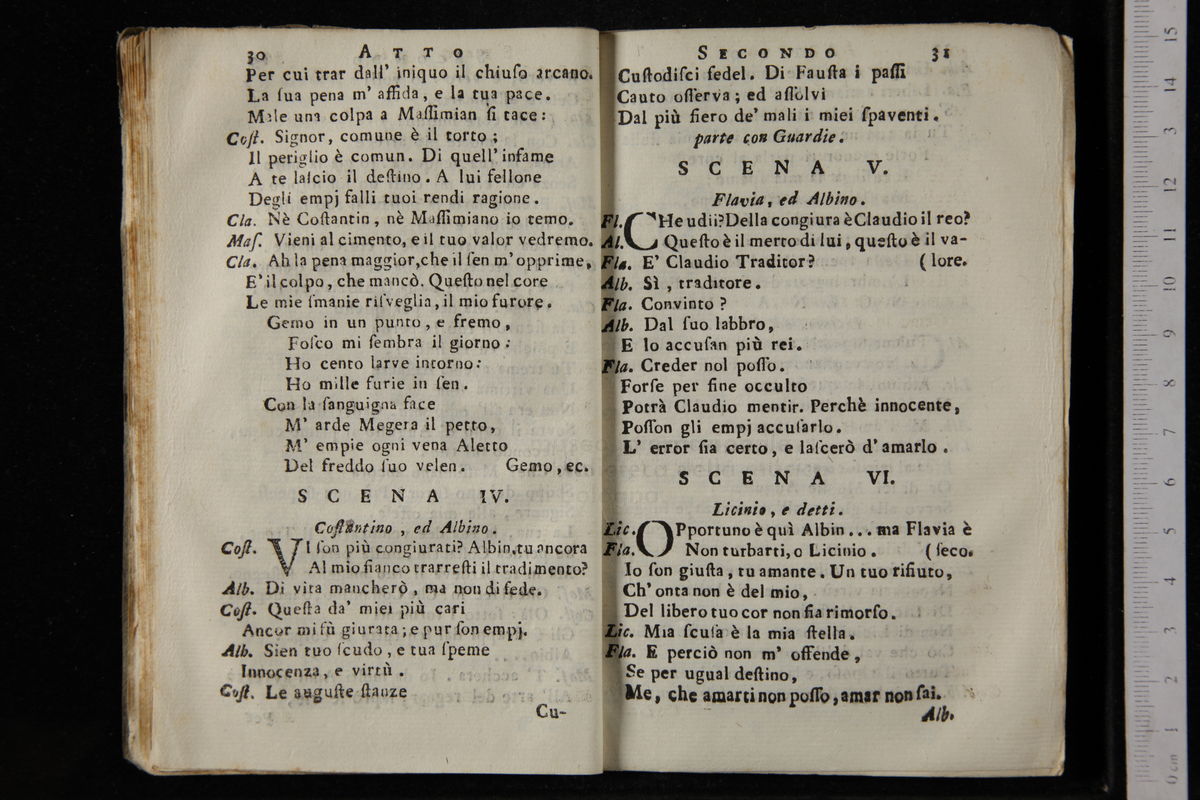 30 ATTO
Per cui trar dall' iniquo il chiuſo arcano.
La ſua pena m' affida, e la tua pace.
Male una colpa a Maſſimian ſi tace:
Coſt. Signor, comune è il torto;
Il periglio è comun. Di quell' infame
A te laſcio il deſtino. A lui fellone
Degli empj falli tuoi rendi ragione.
Cla. Nè Coſtantin, nè Maſſimiano io temo.
Maſ. Vieni al cimento, e il tuo valor vedremo.
Cla. Ah la pena maggior, che il ſen m' opprime,
E' il colpo, che mancò. Queſto nel core
Le mie ſmanie riſveglia, il mio furore.
Gemo in un punto, e fremo,
Foſco mi ſembra il giorno:
Ho cento larve intorno:
Ho mille furie in ſen.
Con la ſanguigna face
M' arde Megera il petto,
M' empie ogni vena Aletto
Del freddo ſuo velen. Gemo, ec.
SCENA IV.
Coſtantino, ed Albino.
Coſt. VI ſon più congiurati? Albin, tu ancora
Al mio fianco trarreſti il tradimento?
Alb. Di vita mancherò, ma non di fede.
Coſt. Queſta da' miei più cari
Ancor mi fù giurata; e pur ſon empj.
Alb. Sien tuo ſcudo, e tua ſpeme
Innocenza, e virtù.
Coſt. Le auguſte ſtanze
Cu-
SECONDO 31
Cuſtodiſci fedel. Di Fauſta i paſſi
Cauto oſſerva; ed aſſolvi
Dal più fiero de' mali i miei ſpaventi.
parte con Guardie.
SCENA V.
Flavia, ed Albino.
Fl. CHe udii? Della congiura è Claudio il reo?
Al. Queſto è il merto di lui, queſto è il va-
Fla. E' Claudio Traditor? (lore.
Alb. Sì, traditore.
Fla. Convinto?
Alb. Dal ſuo labbro,
E lo accuſan più rei.
Fla. Creder nol poſſo.
Forſe per fine occulto
Potrà Claudio mentir. Perchè innocente,
Poſſon gli empj accuſarlo.
L' error ſia certo, e laſcerò d' amarlo.
SCENA VI.
Licinio, e detti.
Lic. OPportuno è quì Albin... ma Flavia è
Fla. Non turbarti, o Licinio. (ſeco.
Io ſon giuſta, tu amante. Un tuo rifiuto,
Ch' onta non è del mio,
Del libero tuo cor non ſia rimorſo.
Lic. Mia ſcuſa è la mia ſtella.
Fla. E perciò non m' offende,
Se per ugual deſtino,
Me, che amarti non poſſo, amar non ſai.
Alb.
0 cm 1 2 3 4 5 6 7 8 9 10 11 12 13 14 15